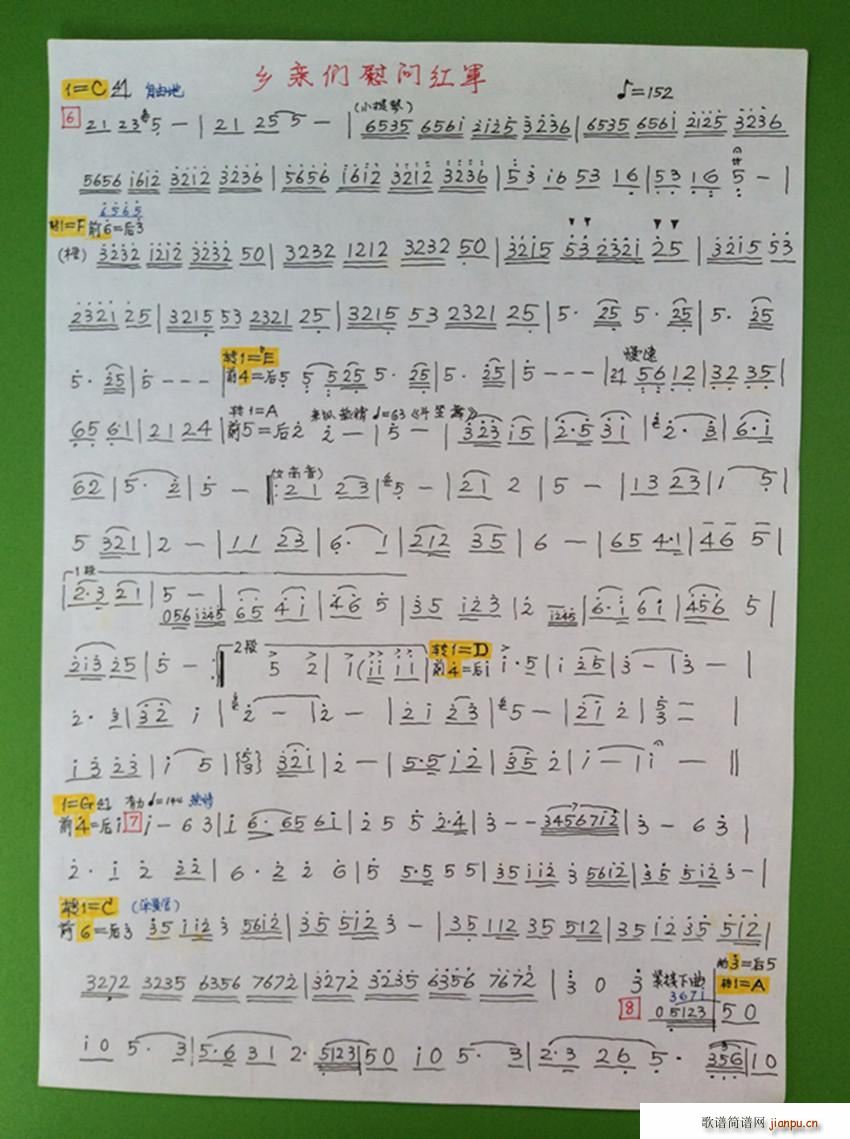 乡亲们慰问红軍
1=C 自由地 ♪=152
(小提琴)
6 21 235 - | 21 255 - | 6535 6561 2125 3236 | 6535 6561 2125 3236
5656 1612 3212 3236 | 5656 1612 3212 3236 | 53 16 53 16 | 53 16 5 - |
6565
转1=F 前6=后3
3232 1212 3232 50 | 3232 1212 3232 50 | 3215 53 2321 25 | 3215 53
2321 25 | 3215 53 2321 25 | 3215 53 2321 25 | 5· 25 5· 25 | 5· 25
转1=E 慢速
5· 25 | 5 - - - | 前4=后5 5 525 5· 25 | 5· 25 | 5 - - - | 56 12 | 32 35 |
转1=A ♩=63
65 61 | 21 24 | 前5=后2 2 - | 5 - | 323 15 | 2·5 31 | 2· 3 | 6·1
(女高音)
62 | 5· 2 | 5 - ‖: 21 23 | 5 - | 21 2 | 5 - | 13 23 | 1 5 |
5 321 | 2 - | 11 23 | 6· 1 | 212 35 | 6 - | 65 4·1 | 46 5 |
1段
| 2·3 21 | 5 - | 056 1245 65 41 | 46 5 | 35 123 | 2 1245 | 6·1 61 | 456 5 |
2段 转1=D
213 25 | 5 - :‖ 5 2 | 1 (11 11 | 前4=后1 1·5 | 1 25 | 3 - | 3 - |
2· 3 | 32 1 | 2 - | 2 - | 21 23 | 5 - | 21 2 | 53 = |
13 23 | 1 5 | {53} 321 | 2 - | 5·5 12 | 35 2 | 1 - | 1 - ‖
1=G ♩=144 热情
前4=后1 7 1 - 63 | 1 6· 65 61 | 2 5 5 2·4 | 3 - - 3456712 | 3 - 63 |
2· 1 2 22 | 6· 2 2 6 | 5 5·5 5 5 | 35 112 3 5612 | 35 512 3 - |
转1=C
前6=后3 35 112 3 5612 | 35 512 3 - | 35 112 35 512 | 35 12 35 512 |
前3=后5
3272 3235 6356 7672 | 3272 3235 6356 7672 | 3 0 3 紧接下曲 转1=A
3671
8 05123 | 50
10 5· 3 | 5·6 31 2· 5123 | 50 10 5· 3 | 2·3 26 5· 356 | 10
歌谱简谱网 jianpu.cn